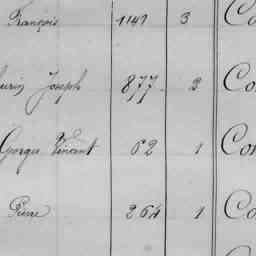 François 1141 3 Co
Joseph 877 3 Co
Georges Vincent 62 1 Con
Pierre 264 1 Co